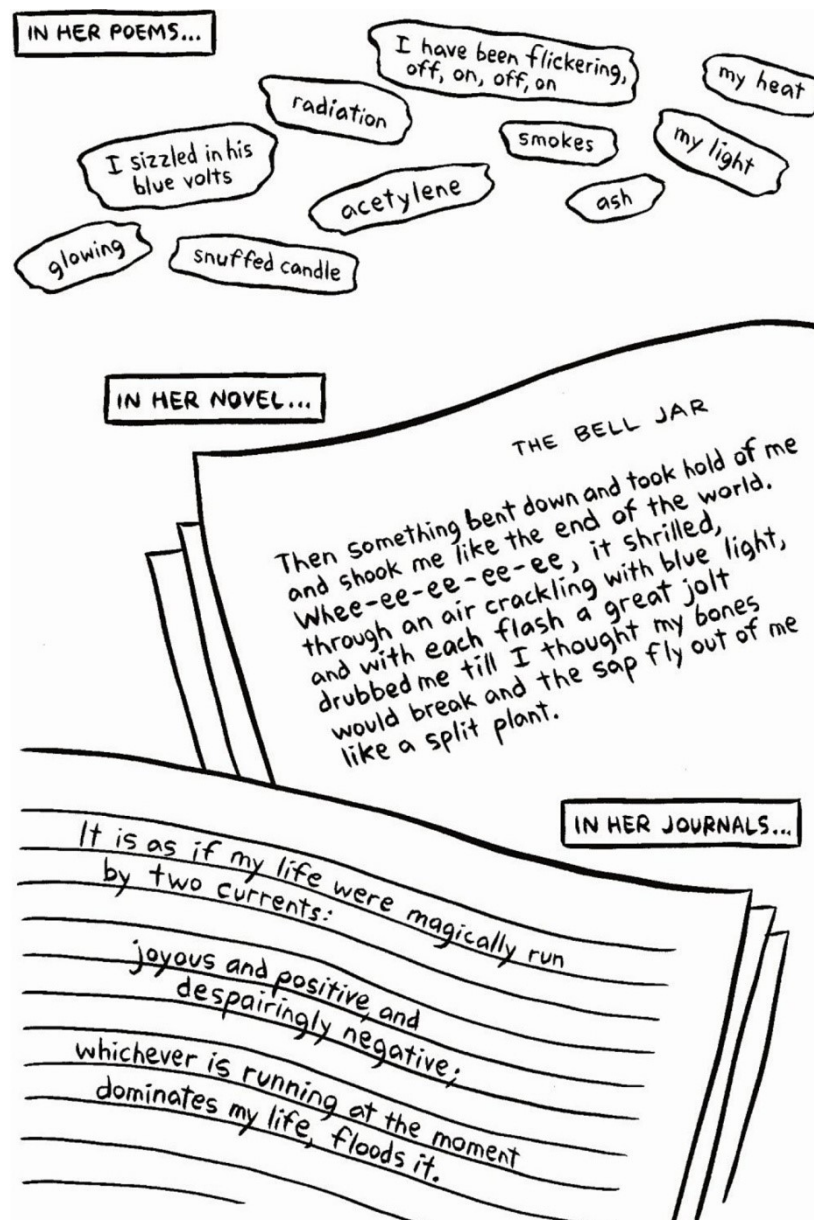 IN HER POEMS...
I have been flickering,
off, on, off, on
my heat
radiation
smokes
my light
I sizzled in his
blue volts
acetylene
ash
glowing
snuffed candle
IN HER NOVEL...
THE BELL JAR
Then something bent down and took hold of me
and shook me like the end of the world.
Whee-ee-ee-ee-ee, it shrilled,
through an air crackling with blue light,
and with each flash a great jolt
drubbed me till I thought my bones
would break and the sap fly out of me
like a split plant.
IN HER JOURNALS...
It is as if my life were magically run
by two currents:
joyous and positive, and
despairingly negative;
whichever is running at the moment
dominates my life, floods it.